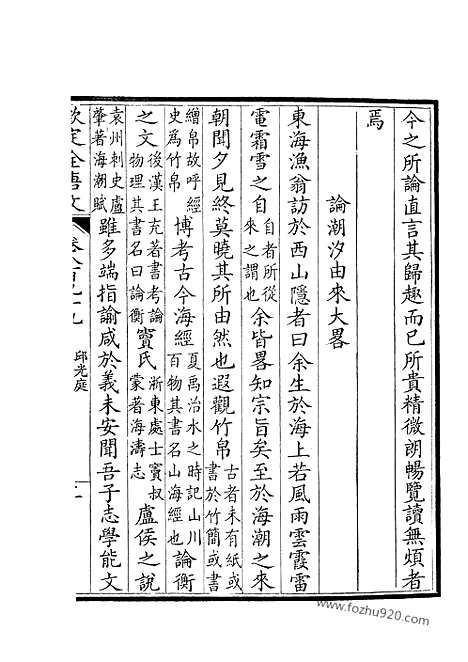 今之所論直言其歸趣而已所貴精微朗暢覽讀無煩者
焉
論潮汐由來大畧
東海漁翁訪於西山隱者曰余生於海上若風雨雲霞雷
電霜雪之自自者所從來之謂也余皆畧知宗旨矣至於海潮之來
朝聞夕見終莫曉其所由然也遐觀竹帛古者未有紙或書於竹簡或書
繒帛故呼經史爲竹帛博考古今海經夏禹治水之時記山川百物其書名山海經也論衡
之文後漢王充著書考論物理其書名曰論衡竇氏浙東處士竇叔蒙著海濤志盧侯之說
袁州刺史盧肇著海潮賦雖多端指諭咸於義未安聞吾子志學能文
欽定全唐文 卷八百九十九 邱光庭
www.fozhu920.com